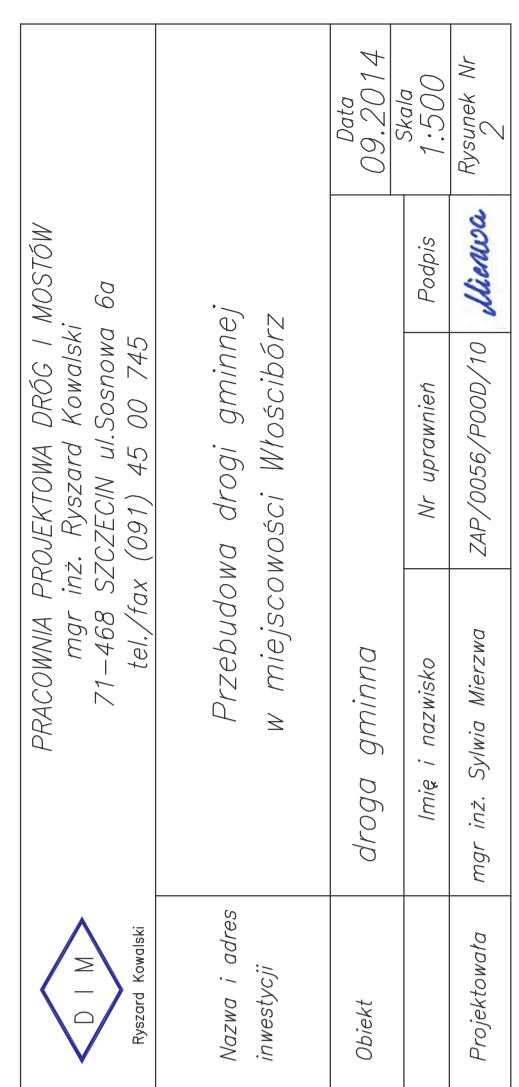 D I M
Ryszard Kowalski
PRACOWNIA PROJEKTOWA DRÓG I MOSTÓW
mgr inż. Ryszard Kowalski
71-468 SZCZECIN ul.Sosnowa 6a
tel./fax (091) 45 00 745
Nazwa i adres
inwestycji
Przebudowa drogi gminnej
w miejscowości Włościbórz
Obiekt
droga gminna
Data
09.2014
Imię i nazwisko
Nr uprawnień
Podpis
Skala
1:500
Projektowała
mgr inż. Sylwia Mierzwa
ZAP/0056/POOD/10
Mierzwa
Rysunek Nr
2